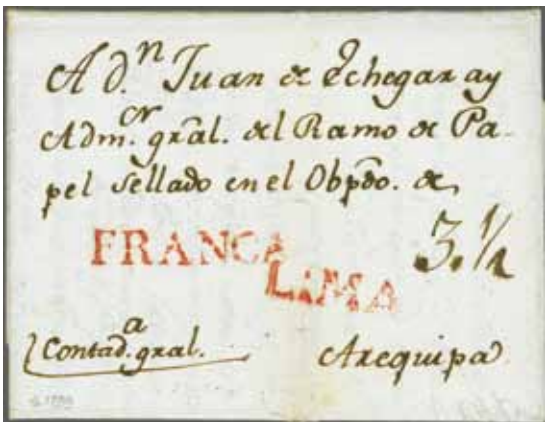 A d.ⁿ Juan de Echegaray
Adm.ᵒʳ gral. del Ramo de Pa-
pel Sellado en el Obpdo. de
FRANCA
3.½
LIMA
Contad.ᵃ gral.
Arequipa